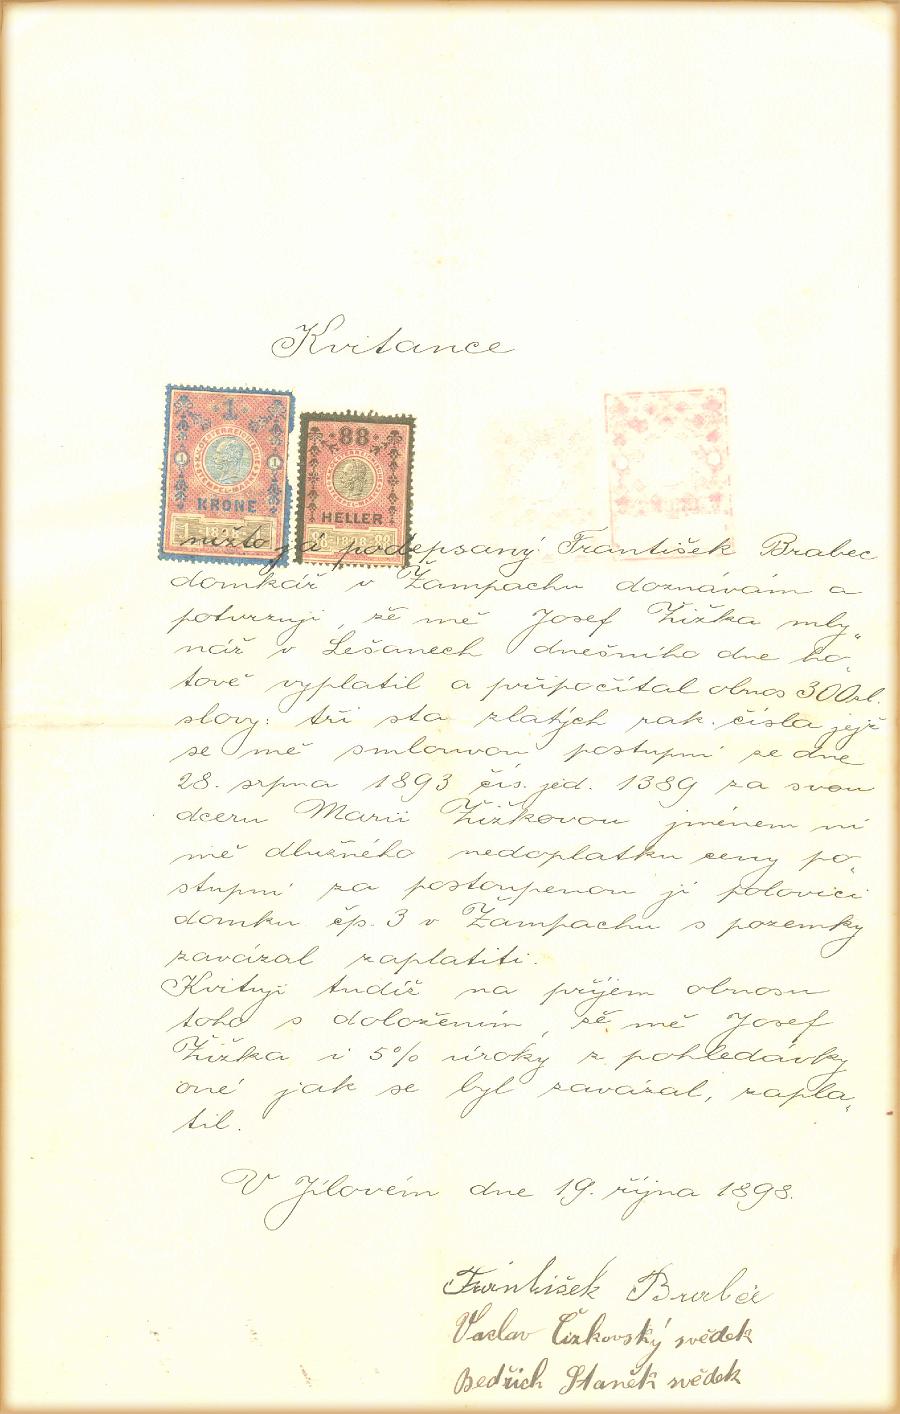 Kvitance
1
K.K. OESTERREICHISCHE STEMPEL-MARKE
KRONE
1 1898 1
88
K.K. OESTERREICHISCHE STEMPEL-MARKE
HELLER
88 1898 88
nížto já podepsaný František Brabec
domkář v Žampachu doznávám a
potvrzuji, že mě Josef Žižka mly„
nář v Lešanech dnešního dne ho„
tově vyplatil a připočítal obnos 300zl.
slovy: tři sta zlatých rak. čísla jejž
se mě smlouvou postupní ze dne
28. srpna 1893 čís. jed. 1389 za svou
dceru Marii Žižkovou jménem ní
mě dlužného nedoplatku ceny po„
stupní za postoupenou jí polovici
domku čp. 3 v Žampachu s pozemky
zavázal zaplatiti.
Kvituji tudíž na příjem obnosu
toho s doložením, že mě Josef
Žižka i 5% úroky z pohledávky
oné jak se byl zavázal, zapla„
til.
V Jílovém dne 19. října 1898.
František Brabec
Vaclav Čížkovský svědek
Bedřich Staněk svědek